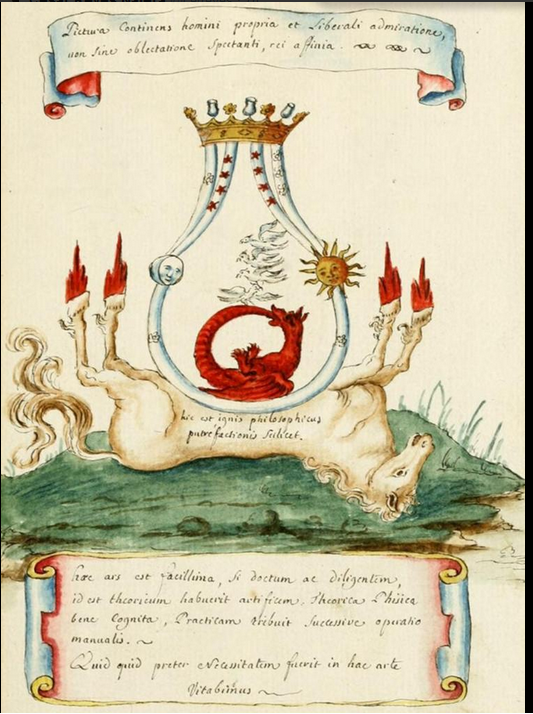 Pictura Continens homini propria et Liberali admiratione,
non sine oblectatione Spectanti, rei affinia.
hic est ignis philosophicus
putrefactionis scilicet.
hæc ars est facillima, si doctum ac diligentem,
id est theoricum habuerit artificem. Theorica Phisica
bene Cognita, Practicam tribuit Successive operatio
manualis.
Quid quid preter Necessitatem fuerit in hac arte
Vitabimus